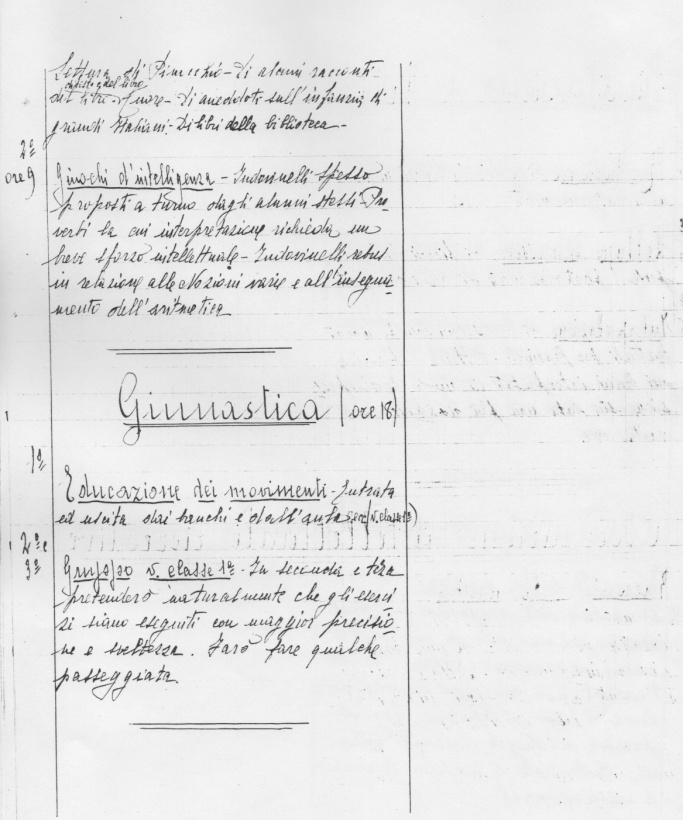 Lettura di Pinocchio - Di alcuni racconti
del libro
del libro Cuore - Di aneddoti sull'infanzia di
grandi Italiani - Di libri della biblioteca -
2ª
ore 9
Giuochi d'intelligenza - Indovinelli spesso
proposti a turno dagli alunni stessi - Pro
verbi la cui interpretazione richieda un
breve sforzo intellettuale - Indovinelli rebus
in relazione alle Nozioni varie e all'insegna-
mento dell'aritmetica
Ginnastica (ore 18)
1ª
Educazione dei movimenti - Entrata
ed uscita dai banchi e dall'aula (v. classe 1ª)
2ª e
3ª
v. classe 1ª - In seconda e terza
pretenderò naturalmente che gli eserci
zi siano eseguiti con maggior precisio-
ne e sveltezza. Farò fare qualche
passeggiata.